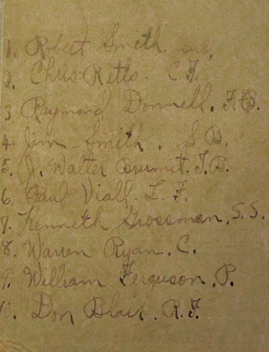 1. Robert Smith. sub.
2. Chris Retls. C.F.
3 Raymond Donnell. F.B.
4. Jim Smith. S.B.
5. J. Walter Burmit. T.B.
6. Paul Viall. L.F.
7. Kenneth Grossman. S.S.
8. Warren Ryan, C.
9. William Ferguson, P.
10. Don Blair. R.F.